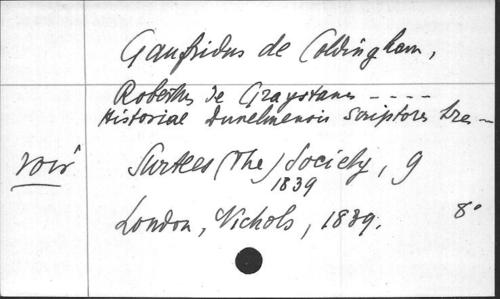 Gaufridus de Coldingham,
Robertus de Graystanes ----
Historiae Dunelmensis Scriptores tres --
voir Surtees (The) Society, 9
1839
London, Nichols, 1839. 8°